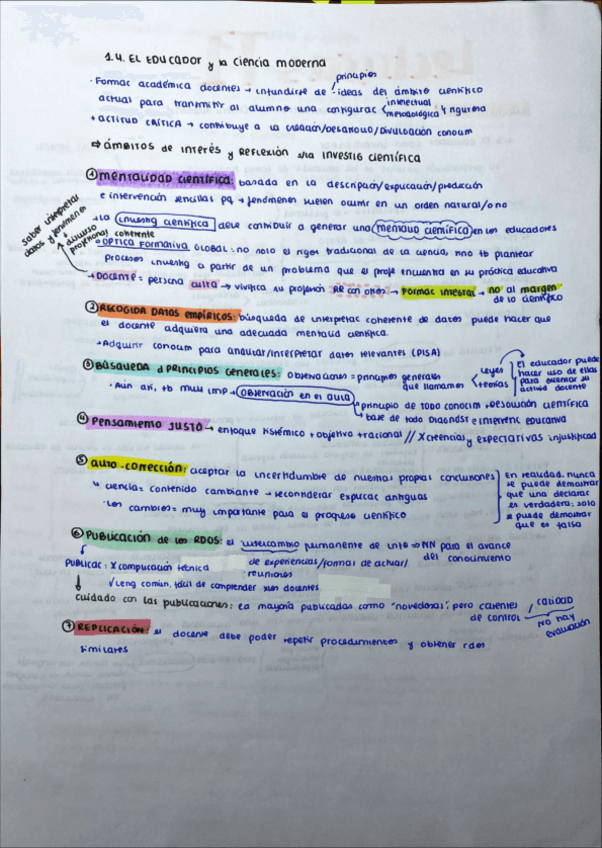 1.4. EL EDUCADOR y la ciencia moderna
principios
· Formac académica docentes → infundirse de - ideas del ámbito científico
actual para transmitir al alumno una configurac intelectual metodológica y rigurosa
+ ACTITUD CRÍTICA → contribuye a la creación/desarrollo/divulgación conocim
⇒ ámbitos de interés y reflexión s/la investig científica
① MENTALIDAD CIENTÍFICA: basada en la descripción/explicación/predicción
e intervención sencillas pq → fenómenos suelen ocurrir en un orden natural/o no
→ La investig científica debe contribuir a generar una mentalid científica en los educadores
saber interpretar datos y fenómenos
+ discurso profesional coherente
→ óptica formativa GLOBAL: no solo el rigor tradicional de la ciencia, sino tb plantear
procesos investig a partir de un problema que el profe encuentra en su práctica educativa
→ Docente = persona culta → vivifica su profesión AR con otros → Formac integral → no al margen
de lo científico
② RECOGIDA DATOS EMPÍRICOS: búsqueda de interpretac coherente de datos puede hacer que
el docente adquiera una adecuada mentalid científica.
→ Adquirir conocim para analizar/interpretar datos relevantes (PISA)
③ BÚSQUEDA d PRINCIPIOS GENERALES: observaciones = principios generales
que llamamos leyes teorías
El educador puede
hacer uso de ellas
para orientar su
actividad docente
· Aún así, tb muy imp → Observación en el aula
principio de todo conocim + desolución científica
base de todo diagnóst e intervenc educativa
④ Pensamiento JUSTO → enfoque sistémico + objetivo + racional // X creencias y expectativas injustificad
⑤ auto-corrección: aceptar la incertidumbre de nuestras propias conclusiones
↳ ciencia = contenido cambiante → reconsiderar explicac antiguas
· Los cambios = muy importante para el progreso científico
en realidad, nunca
se puede demostrar
que una declarac
es verdadera; solo
se puede demostrar
que es falsa
⑥ PUBLICACIÓN de los RDOS: el intercambio permanente de info ⇒ NN para el avance
del conocimiento
de experiencias/formas de actuar/
reuniones
PUBLICAC: X complicación técnica
✓ Leng común, fácil de comprender x los docentes
cuidado con las publicaciones: La mayoría publicadas como "novedosas" pero carentes
de control
calidad
No hay
evaluación
⑦ REPLICACIÓN: el docente debe poder repetir procedimientos y obtener rdos
similares